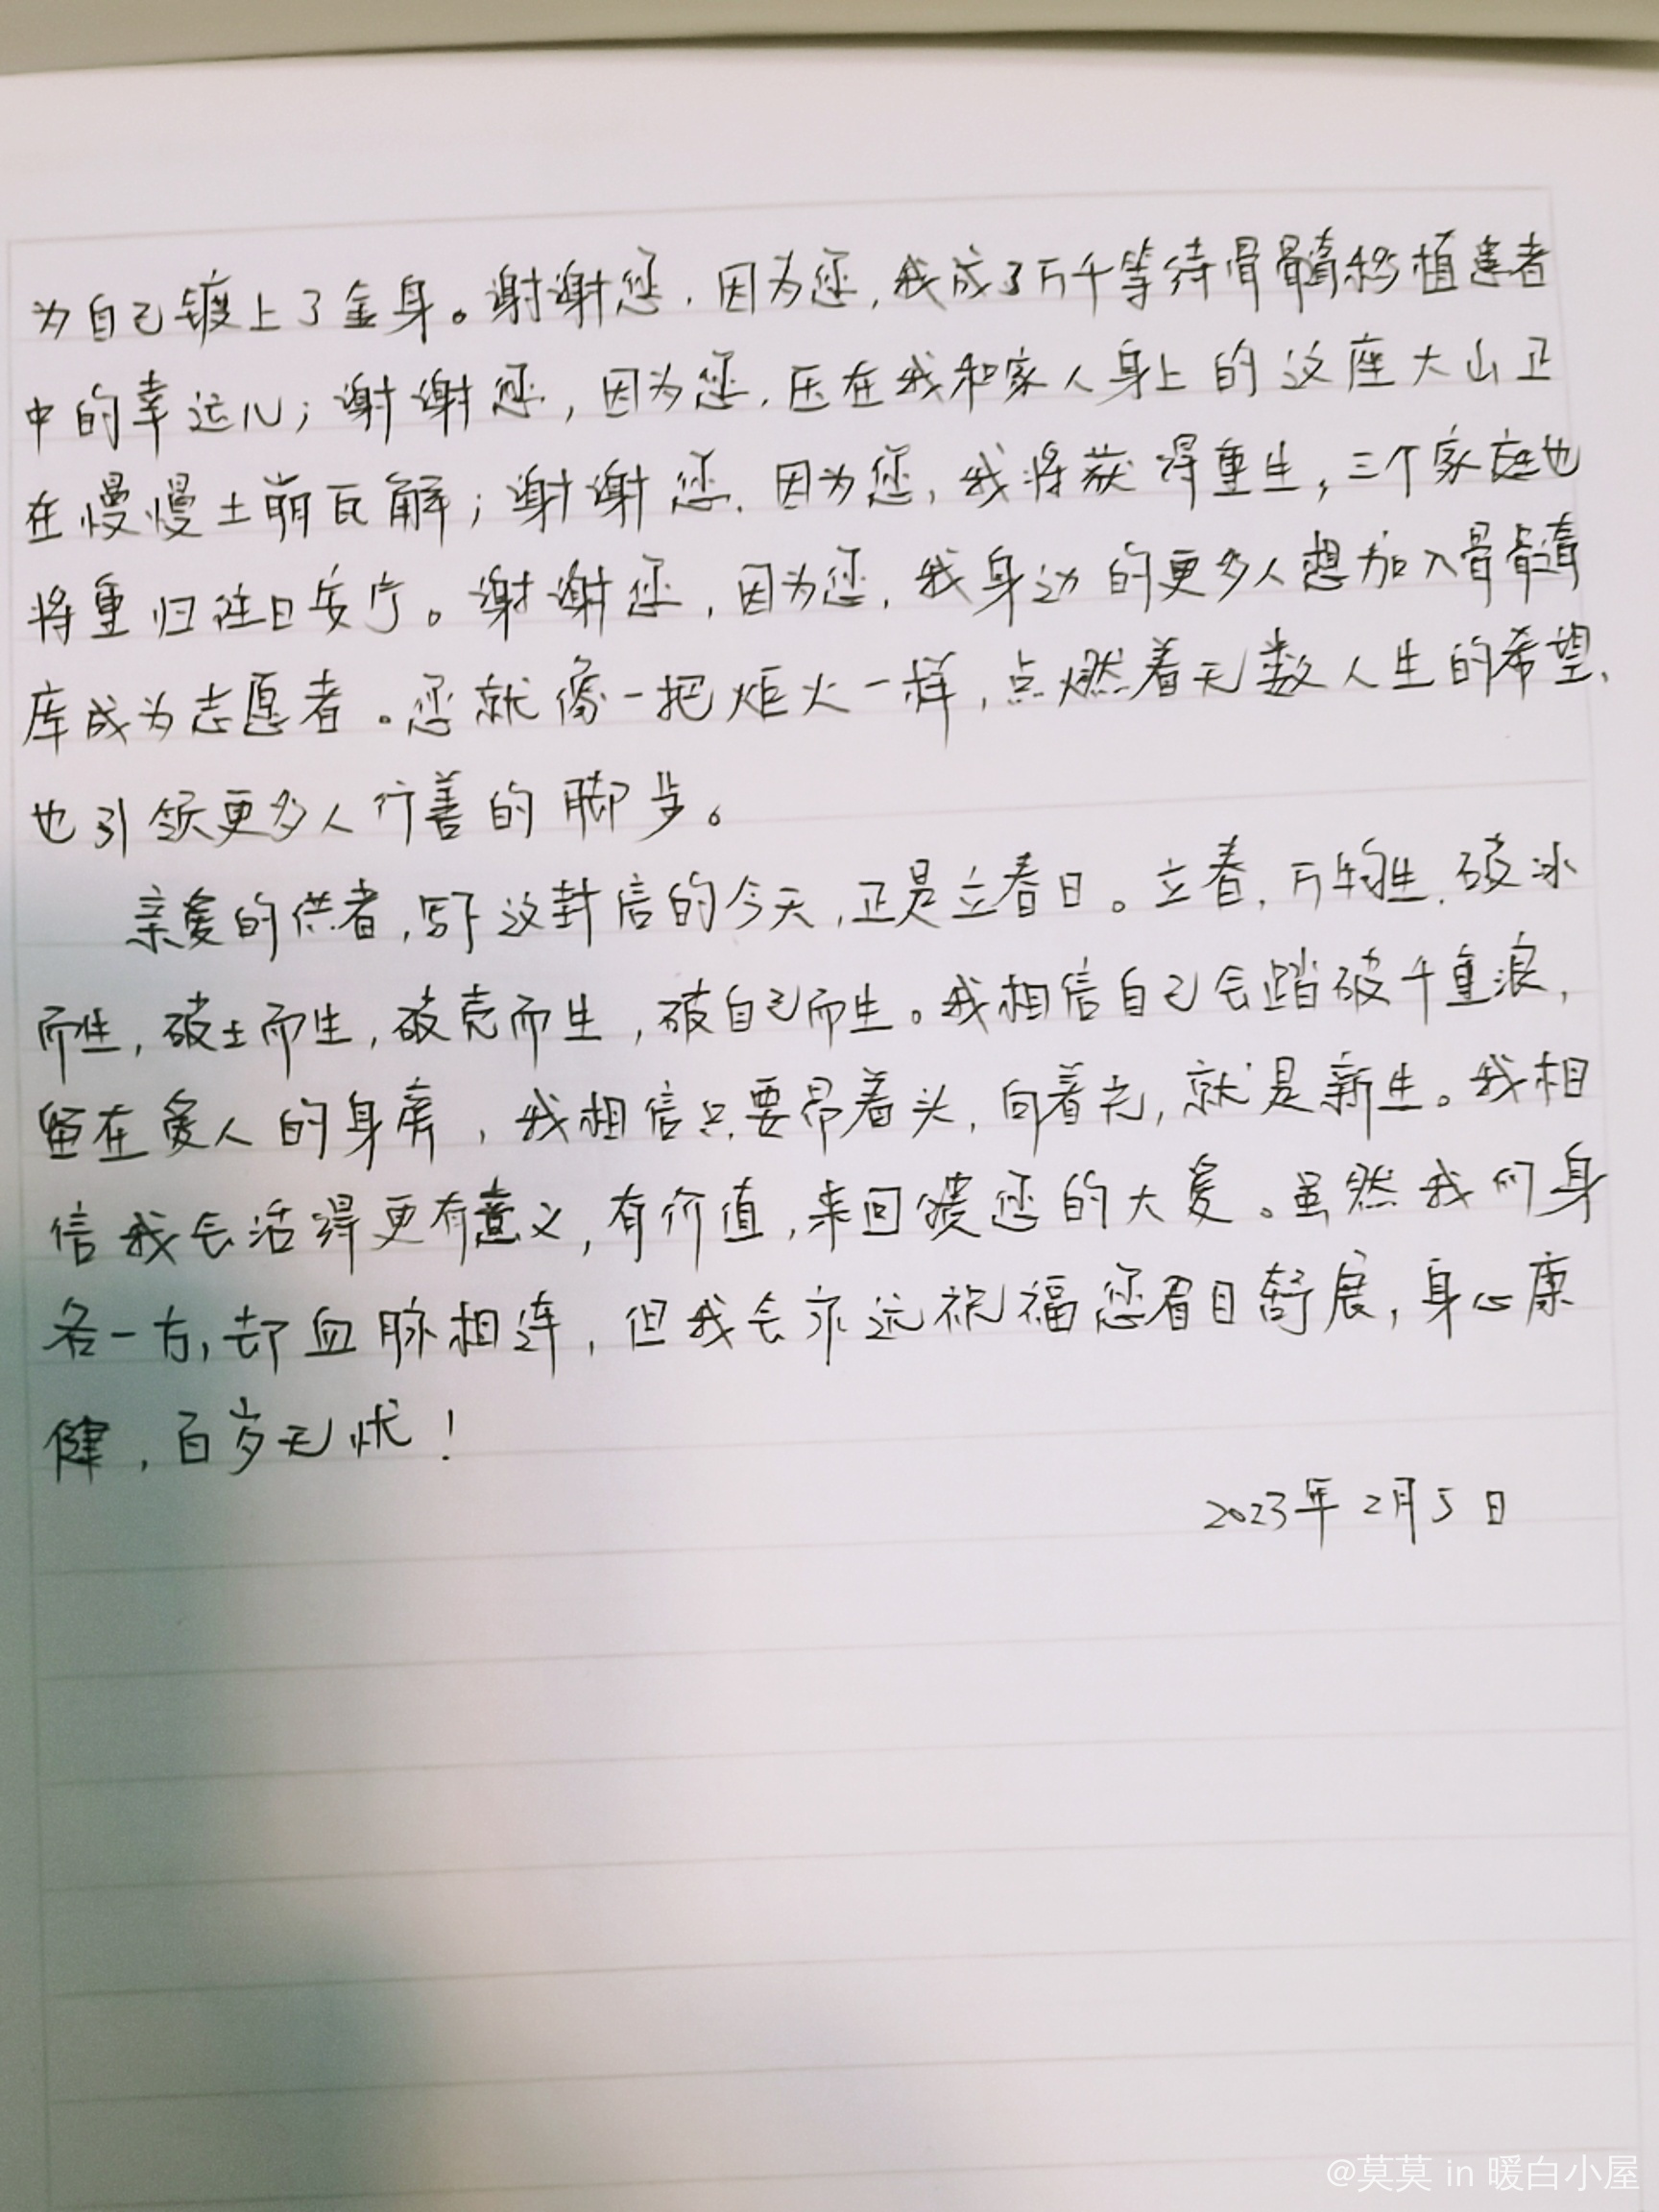 为自己镀上了金身。谢谢您，因为您，我成了万千等待骨髓移植患者
中的幸运儿；谢谢您，因为您，压在我和家人身上的这座大山正
在慢慢土崩瓦解；谢谢您，因为您，我将获得重生，三个家庭也
将重归往日安宁。谢谢您，因为您，我身边的更多人想加入骨髓
库成为志愿者。您就像一把炬火一样，点燃着无数人生的希望、
也引领更多人行善的脚步。
亲爱的供者，写下这封信的今天，正是立春日。立春，万物生，破冰
而生，破土而生，破壳而生，破自己而生。我相信自己会踏破千重浪，
留在爱人的身旁，我相信只要昂着头，向着光，就是新生。我相
信我会活得更有意义，有价值，来回馈您的大爱。虽然我们身
各一方，却血脉相连，但我会永远祝福您眉目舒展，身心康
健，百岁无忧！
2023年2月5日
@莫莫 in 暖白小屋